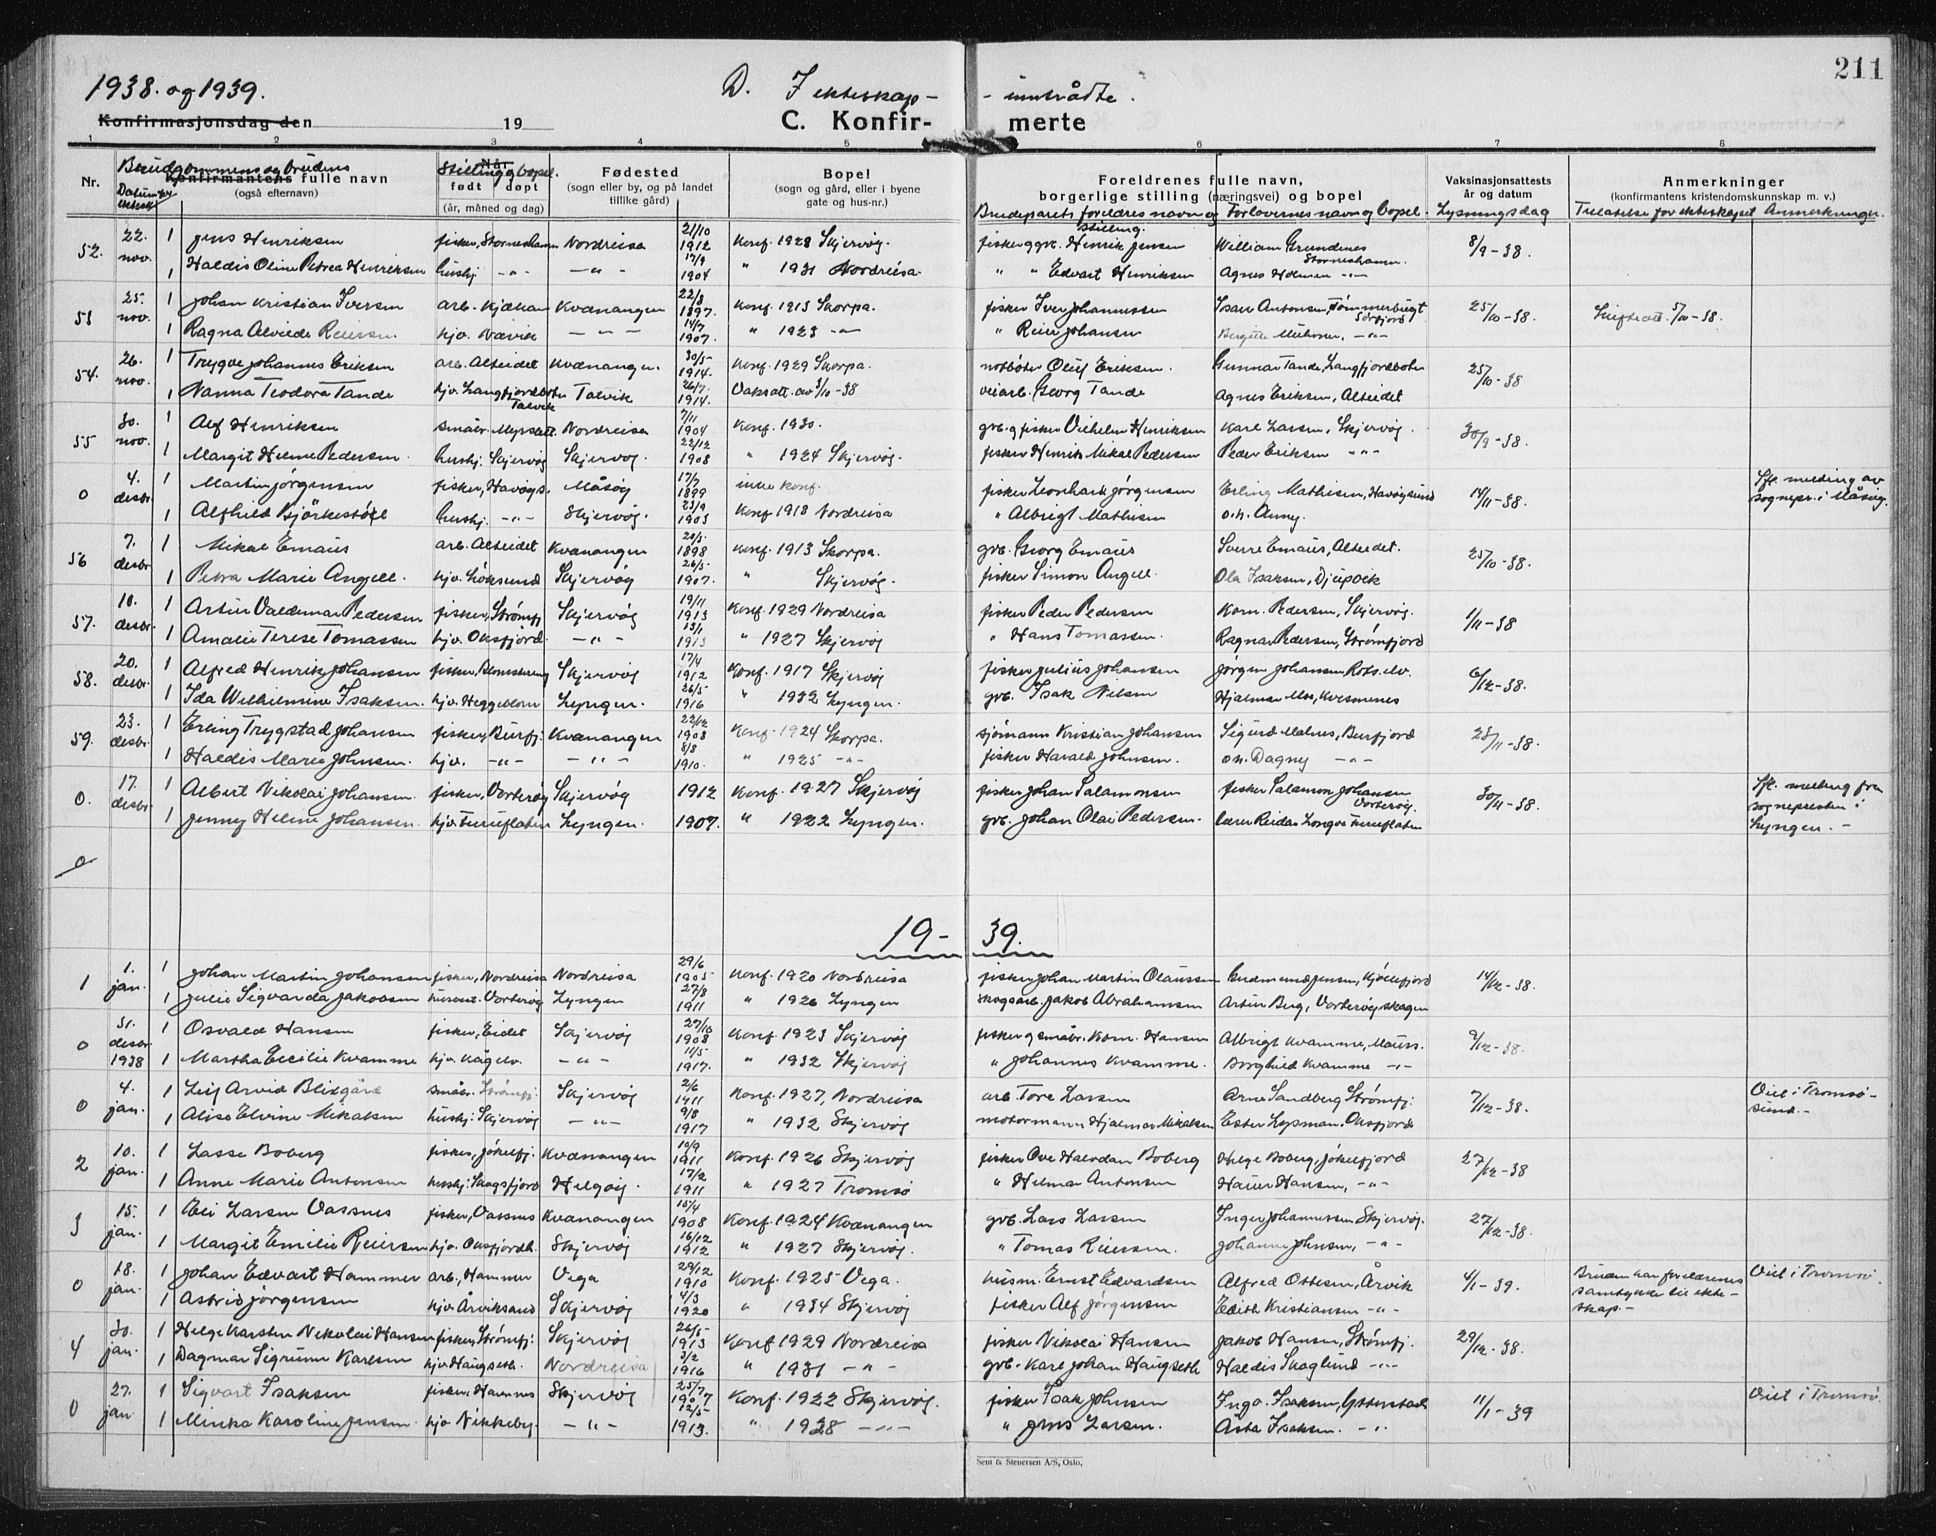 211
1938. og 1939.
D. I ekteskap- - inntrådte.
Konfirmasjonsdag den 19
C. Konfir- merte
1 2 3 4 5 6 7 8
Nr.
Brudgommens og brudens
Konfirmantens fulle navn
(også efternavn)
Stilling og bopel.
Når
født døpt
(år, måned og dag)
Fødested
(sogn eller by, og på landet
tillike gård)
Bopel
(sogn og gård, eller i byene
gate og hus-nr.)
Foreldrenes fulle navn,
borgerlige stilling (næringsvei) og bopel
Brudeparets foreldres navn og stilling. Forlovernes navn og bopel.
Vaksinasjonsattests
år og datum
Lysningsdag
Anmerkninger
(konfirmantens kristendomskunnskap m. v.)
Tillatelse for ekteskapet Anmerkninger.
52. 22. nov. 1 Jens Henriksen fisker, Storneshamn Nordreisa 21/10 1912 Konf. 1928 Skjervøy. fisker g gvb. Henrik Jensen William Grundenes Storneshamn 8/9-38.
1 Haldis Oline Petrea Henriksen hushj. -"- -"- 17/9 1904 " 1931 Nordreisa. " " Edvart Henriksen Agnes Holmen -"-
53 25. nov. 1 Johan Kristian Iversen arb. Kjækan Kvænangen 22/8 1897. Konf. 1913 Skorpa. fisker Iver Johannessen Isak Antonsen, Tømmerbugt Sørfjord 25/10-38. Skifteatt. 5/10-38.
1 Ragna Alvilde Reiersen hjv. Nævik -"- 14/7 1907. " 1923 -"- " Reier Johansen -"-
54. 26. nov. 1 Trygve Johannes Eriksen arb. Alteidet Kvænangen. 30/5 1914. Konf. 1929 Skorpa. notbøter Oluf Eriksen. Gunnar Tande, Langfjordbotn 25/10-38
1 Nanna Teodora Tande hjv. Langfjordbotn Talvik Talvik 26/7. 1914. Vaksatt. av 3/10-38 veiarb. Georg Tande Agnes Eriksen, Alteidet
55 30. nov. 1 Alf Henriksen småbr. Myrslett Nordreisa 7/11 1904 Konf. 1930. gvb. g fisker Vilhelm Henriksen Karl Larsen, Skjervøy. 30/9-38.
1 Margit Helene Pedersen. hushj. Skjervøy Skjervøy. 22/12 1908 " 1924 Skjervøy. fisker Henrik Mikal Pedersen Peder Eriksen -"-
0 4. desbr. 1 Martin Jørgensen fisker, Havøys. Måsøy 17/9 1899 ikke konf. fisker Leonhard Jørgensen Erling Mathisen, Havøysund 14/11-38. Ifl. melding av sognepr. i Måsøy.
1 Alfhild Bjørkestøl hushj. -"- Skjervøy. 23/9 1903 Konf. 1918 Nordreisa " Albrigt Mathisen o.h. Anny.
56 7. desbr 1 Mikal Emaus arb. Alteidet Kvænangen 20/5 1898 Konf. 1913 Skorpa. gvb. Georg Emaus Sverre Emaus, Alteidet. 25/10-38.
1 Petra Marie Angell. hjv. Løksund Skjervøy 26/5- 1907. " Skjervøy. fisker Simon Angell. Ola Isaksen, Djupvik
57. 10. desbr. 1 Artur Valdemar Pedersen fisker, Strømfj. Skjervøy 19/11 1913 Konf. 1929 Nordreisa fisker Peder Pedersen Korn. Pedersen, Skjervøy. 1/11-38
1 Amalie Terese Tomassen hjv. Oksfjord. -"- 13/1 1913 " 1927 Skjervøy " Hans Tomassen. Ragna Pedersen, Strømfjord
58. 20. desbr. 1 Alfred Henrik Johansen fisker, Skjervøy 17/4 1912 Konf. 1917 Skjervøy fisker Julius Johansen Jørgen Johansen Rotselv. 6/12-38.
1 Ida Wilhelmine Isaksen. hjv. Heggeblom Lyngen. 26/5 1916 " 1932 Lyngen. gvb. Isak Nilsen Hjalmar Moe, Kvesmenes
59. 23. desbr. 1 Erling Trygstad Johansen fisker, Burfj. Kvænangen 22/12 1903 Konf. 1924 Skorpa. sjømann Kristian Johansen Sigurd Malnes, Burfjord 23/11-38.
1 Haldis Marie Johnsen. hjv. -"- -"- 8/8 1910. " 1925 -"- fisker Harald Johnsen. o.h. Dagny -"-
0. 17. desbr. 1 Albert Nikolai Johansen. fisker, Vorterøy Skjervøy 1912 Konf. 1927 Skjervøy fisker Johan Salamonsen fisker Salamon Johansen Vorterøy. 30/11-38. Ifl. melding fra sognepresten i Lyngen.-
1 Jenny Helene Johansen. hjv. Furuflaten Lyngen. 1907. " 1922 Lyngen. gvb. Johan Olai Pedersen. lærer Reidar Longva Furuflaten
0
19- 39.
1 1. jan. 1 Johan Martin Johansen fisker, Nordreisa Nordreisa 29/6 1905 Konf. 1920 Nordreisa fisker Johan Martin Olaussen Gudmund Jensen, Kjøllefjord 14/12-38.
1 Julie Sigvarda Jakobsen husvert. Vorterøy Lyngen 27/8 1911 " 1926 Lyngen skogsarb. Jakob Abrahamsen Artur Berg, Vorterøyskagen
0 31. desbr. 1938 1 Osvald Hansen fisker, Eidet Skjervøy 27/10 1908 Konf. 1923 Skjervøy fisker g småbr. Korn. Hansen Albrigt Kvamme, Mauss. 9/12-38.
1 Martha Cecilie Kvamme hjv. Kågelv. -"- 11/5 1917. " 1932 Skjervøy " Johannes Kvamme. Borghild Kvamme -"-
0 4. jan. 1 Leif Arvid Blixgård småbr. Strømfj: Skjervøy 2/6 1911 Konf. 1927, Nordreisa arb. Tore Larsen Arne Sandberg Strømfj: 7/12-38. Viet i Tromsø-sund.-
1 Alise Elvine Mikalsen hushj: Skjervøy -"- 9/8 1917 " 1932 Skjervøy motormann Hjalmar Mikalsen Ester Lysman. Oksfjord
2 10. jan. 1 Lasse Boberg fisker, Jøkelfj. Kvænangen 10/9 1911 Konf. 1926 Skjervøy fisker Ove Halvdan Boberg Helge Boberg, Jøkelfjord 27/12-38
1 Anne Marie Antonsen hushj: Skogsfjord Helgøy. 17/2 1911 " 1927 Tromsø " Hilmar Antonsen Hansen, -"-
3 15. jan. 1 Eli Larsen Vassnes fisker, Vassnes Kvænangen 15/4 1908 Konf. 1924 Kvænangen gvb. Lars Larsen Inger Johannessen Skjervøy. 27/12-38.
1 Margit Emilie Reiersen hjv. Oksfjordh. Skjervøy 16/12 1912 " 1927 Skjervøy. " Tomas Reiersen. Johanne Johnsen, -"-
0 18. jan. 1 Johan Edvart Hammer arb., Hammer Vega 29/12 1910 Konf. 1925 Vega. husm. Ernst Edvardsen Alfred Ottesen, Årvik 4/1-39. Bruden har foreldrenes samtykke til ekteskap.- Viet i Tromsø.
1 Astrid Jørgensen hjv. Årviksand Skjervøy 4/3 1920 " 1934 Skjervøy fisker Alf Jørgensen Edith Kristiansen -"-
4 30. jan. 1 Helge Karsten Nikolai Hansen fisker, Strømfj: Skjervøy 26/5- 1913 Konf 1929 Nordreisa fisker Nikolai Hansen Jakob Hansen, Strømfj: 29/12-38.
1 Dagmar Sigrunn Karlsen hjv Haugseth. Nordreisa 3/2 1916 " 1931 -"- gvb. Karl Johan Haugseth Haldis Skoglund -"-
0 27. jan 1 Sigvart Isaksen fisker, Havnnes Skjervøy 25/7 1907 Konf. 1922 Skjervøy. fisker Isak Johnsen Inga. Isaksen, 11/1-39 Viet i Tromsø.
1 Minka Karoline Jensen. hjv Nikkeby. -"- 12/5 1913. " 1928 -"- " Jens Larsen. Asta Isaksen. -"-
Sem & Stenersen A/S, Oslo.